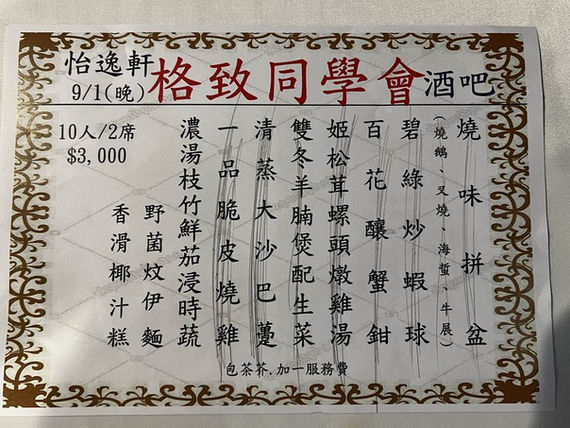 怡逸軒
9/1(晚)
格致同學會
酒吧
10人/2席
$3,000
燒味拼盆
(燒鵝、叉燒、海蜇、牛展)
碧綠炒蝦球
百花釀蟹鉗
姬松茸螺頭燉雞湯
雙冬羊腩煲配生菜
清蒸大沙巴躉
一品脆皮燒雞
濃湯枝竹鮮茄浸時蔬
野菌炆伊麵
香滑椰汁糕
包茶芥.加一服務費